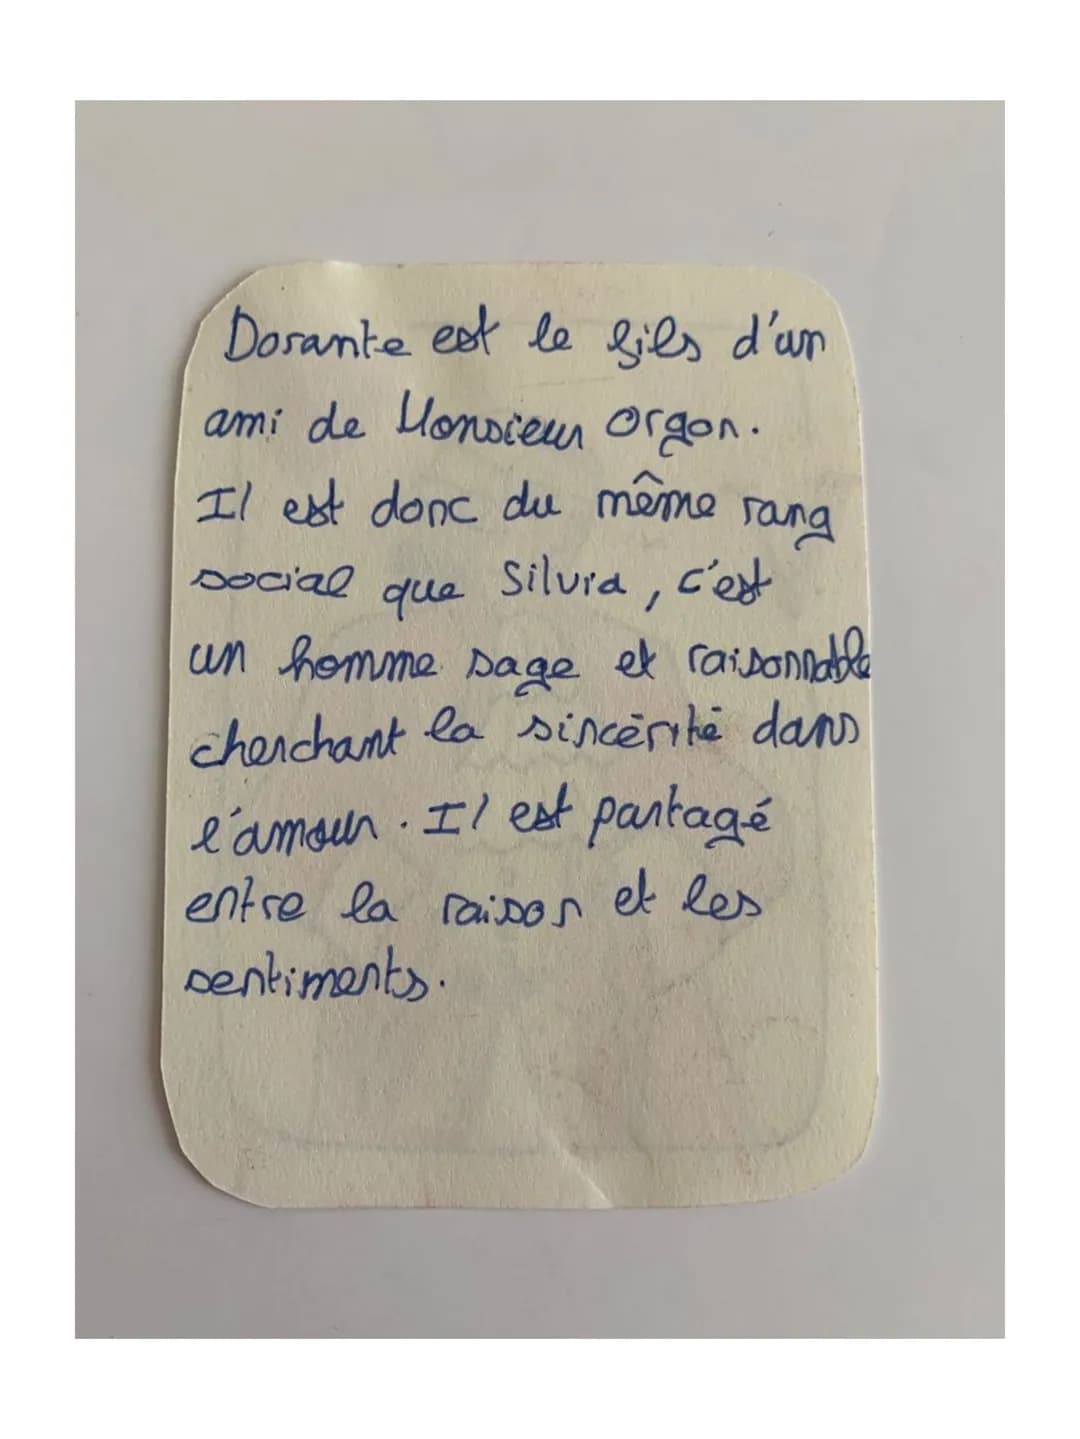 Dorante est le fils d'un
ami de Monsieur Orgon.
Il est donc du même rang
social que Silvia, c'est
un homme sage et raisonnable
cherchant la sincérité dans
l'amour. Il est partagé
entre la raison et les
sentiments.